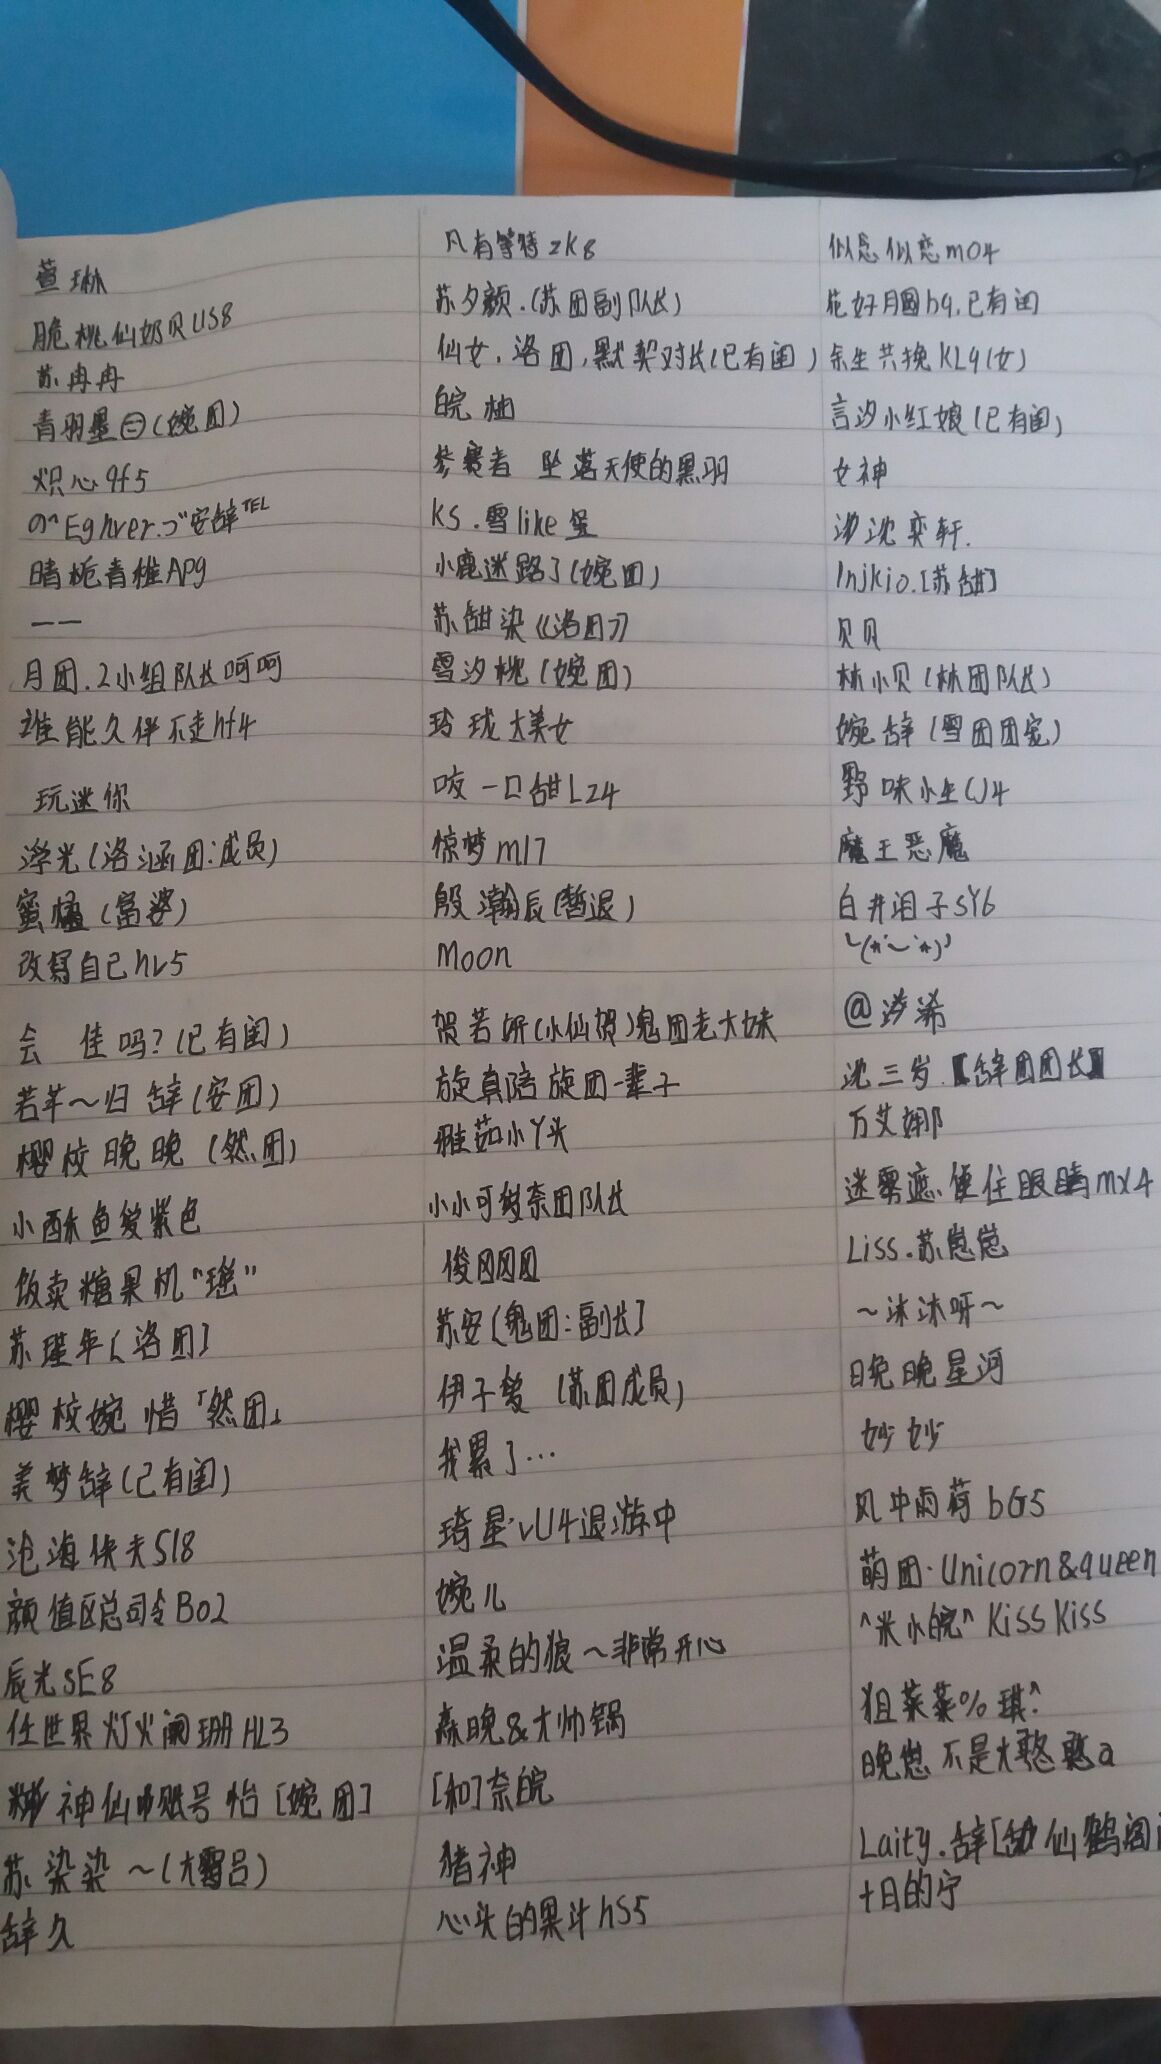 萱琳
脆桃仙奶贝US8
苏冉冉
青羽墨㊂(婉团)
炽心9f5
安辞TEL
晴栀青稚AP9
一一
月团.2小组队长呵呵
谁能久伴不走hf4
玩迷你
浮光(洛涵团:成员)
蜜橘(富婆)
改写自己hv5
会 佳吗?(已有闺)
若芊～归辞(安团)
樱校晚晚(然团)
小酥鱼爱紫色
饭卖糖果机"瑶"
苏瑾年[洛团]
樱校婉惜「然团」
美梦辞(已有闺)
沧海侠夫S18
颜值区总司令B02
辰光SE8
任世界灯火阑珊HL3
神仙账号怡[婉团]
苏染染～(大雪吕)
辞久
凡有等待zk8
苏夕颜.(苏团副队长)
仙女.洛团,默契对长(已有闺)
皖柚
参赛者 坠落天使的黑羽
KS.雪like堡
小鹿迷路了(婉团)
苏甜染《洛团》
雪汐桃(婉团)
玲珑大美女
咬一口甜L24
惊梦m17
殷瀚辰(暂退)
Moon
贺若妍(小仙贺)鬼团老大妹
旋真陪旋团一辈子
雅茹小丫头
小小可爱奈团队长
俊冈冈冈
苏安[鬼团:副长]
伊子爱(苏团成员)
我累了…
琦星·vU4退游中
婉儿
温柔的狼～非常开心
森晚&大帅锅
[和]奈皖
猪神
心头的果汁hS5
似念似恋m04
花好月圆h9.已有闺
余生共挽KL9(女)
言汐小红娘(已有闺)
女神
沈奕轩.
Injkio.[苏甜]
贝贝
林小贝(林团队长)
婉辞(雪团团宠)
野味小生CJ4
魔王恶魔
白井泪子SY6
╰(*´︶`*)╯
@涉浠
沈三岁.【辞团团长】
万艾娜
迷雾遮住眼睛mx4
Liss.苏崽崽
～沐沐呀～
晚晚星河
妙妙
风中雨荷bG5
萌团·Unicorn&queen
^米小皖^KissKiss
狙菜菜%琪^
晚崽不是大憨憨a
Laity.辞[仙鹤阁
十日的宁